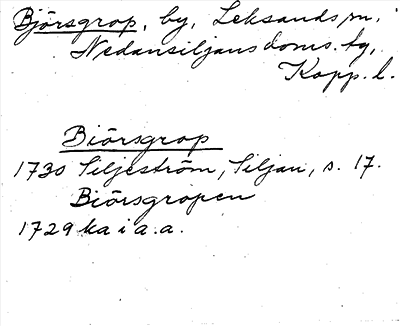 Björsgrop, by, Leksands sn.
Nedansiljans doms. tg,
Kopp. l.
Biörsgrop
1730 Siljeström, Siljan, s. 17.
Biörsgropen
1729 ka i a.a.